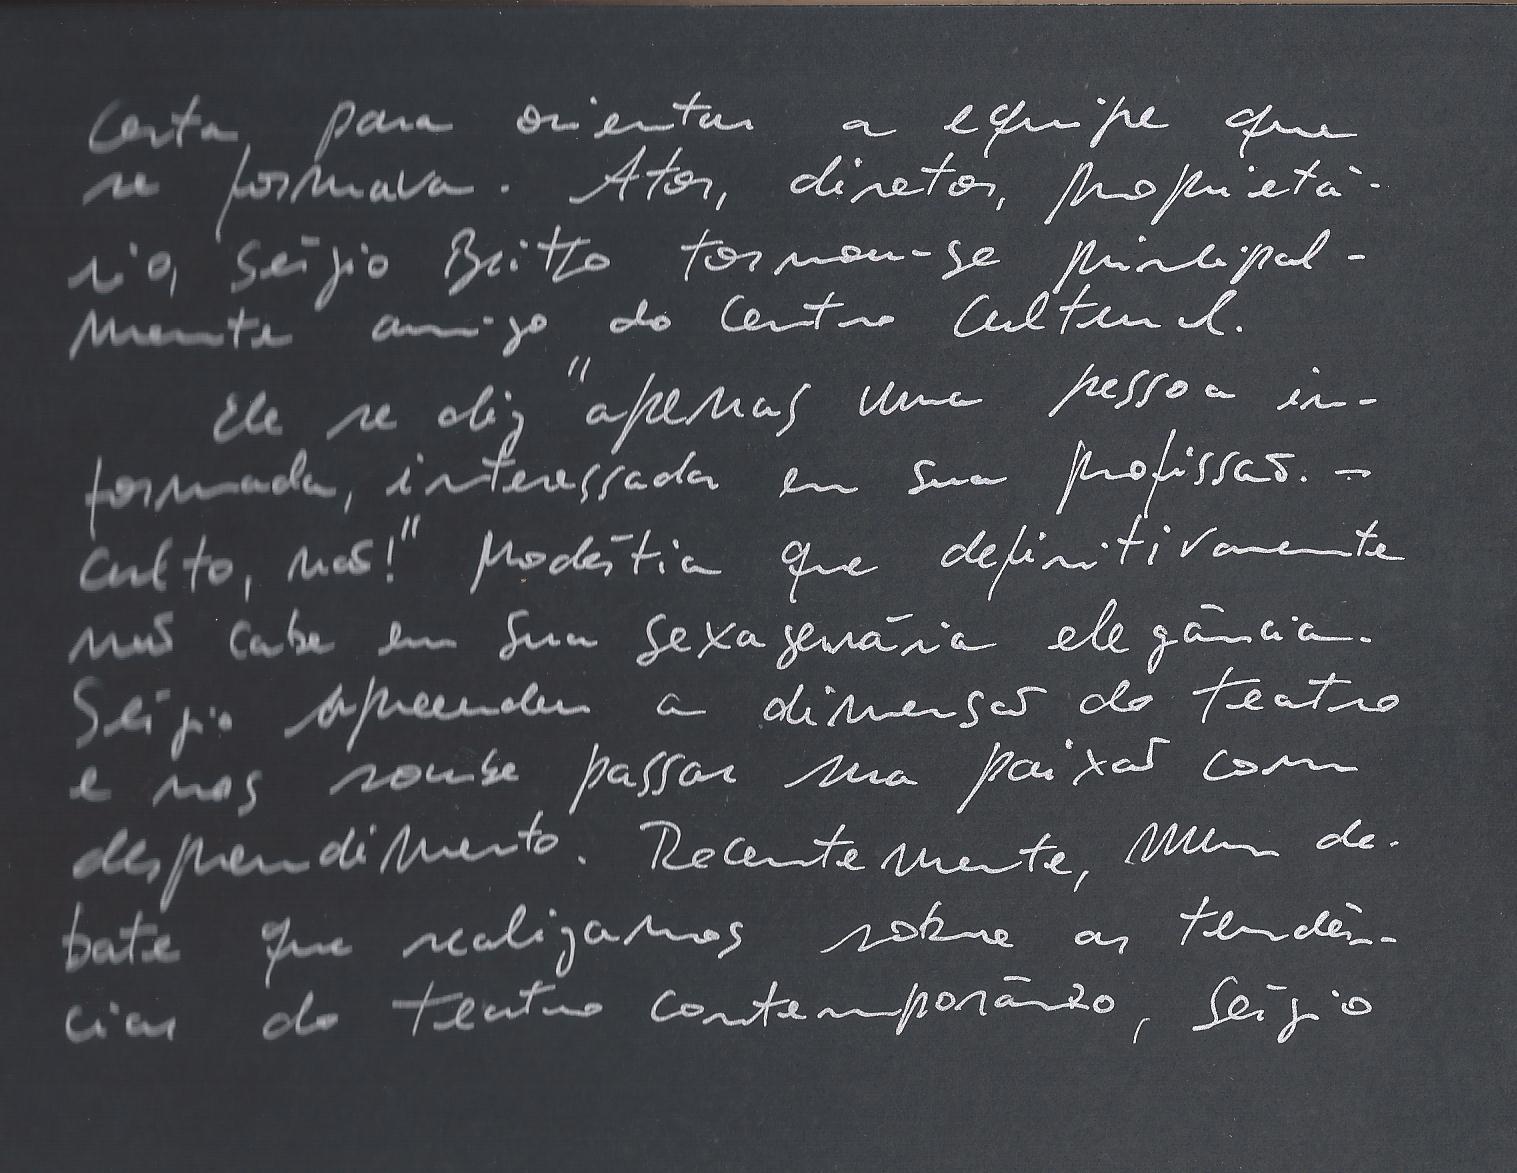 certa, para orientar a equipe que
se formava. Ator, diretor, proprietá-
rio, Sérgio Britto tornou-se principal-
mente amigo do Centro Cultural.
Ele se diz "apenas uma pessoa in-
formada, interessada em sua profissão. -
culto, não!" Modéstia que definitivamente
não cabe em sua sexagenária elegância.
Sérgio apreendeu a dimensão do teatro
e nos soube passar sua paixão com
desprendimento. Recentemente, num de-
bate que realizamos sobre as tendên-
cias do teatro contemporâneo, Sérgio